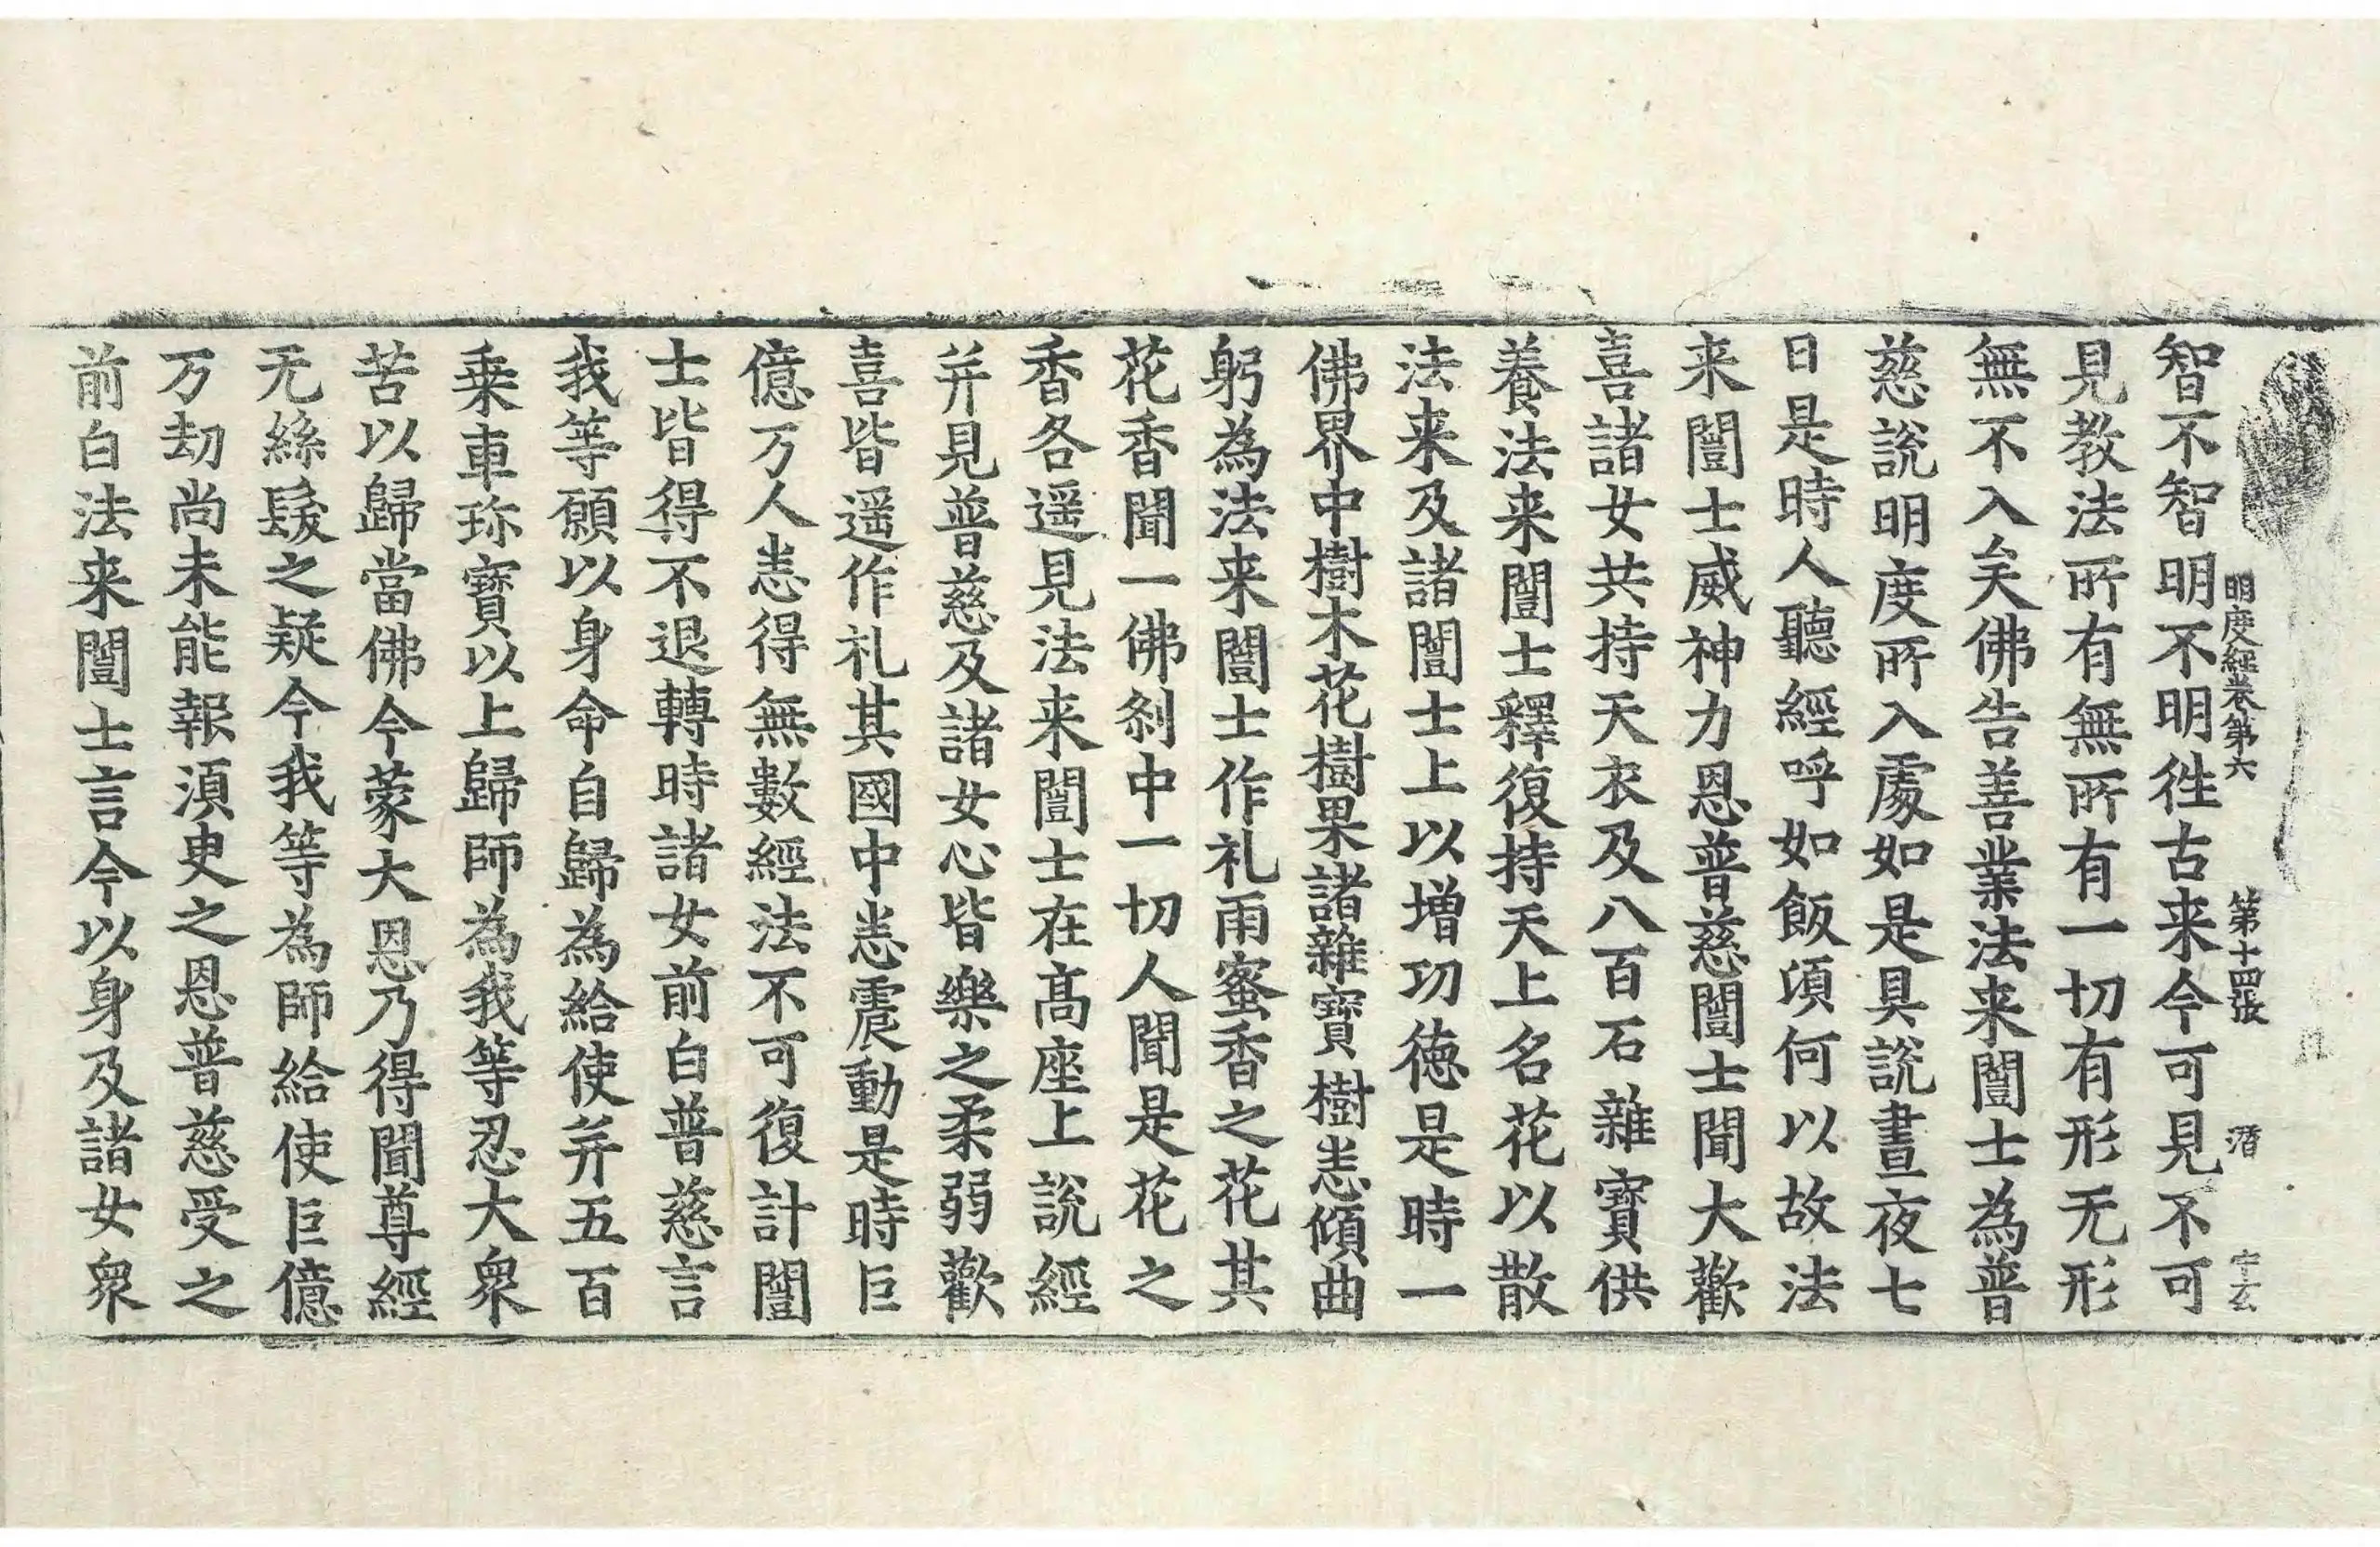 明度經卷第六　第十四張　潛　
智不智明不明徃古来今可見不可
見教法所有無所有一切有形无形
無不入矣佛告善業法来闓士為普
慈說明度所入處如是具說晝夜七
日是時人聽經呼如飯頃何以故法
来闓士威神力恩普慈闓士聞大歡
喜諸女共持天衣及八百石雜寶供
養法来闓士釋復持天上名花以散
法来及諸闓士上以增功德是時一
佛界中樹木花樹果諸雜寶樹悉傾曲
躬為法来闓士作礼雨蜜香之花其
花香聞一佛剎中一切人聞是花之
香各遥見法来闓士在髙座上說經
并見普慈及諸女心皆樂之柔弱歡
喜皆遥作礼其國中悉震動是時巨
億万人悉得無數經法不可復計闓
士皆得不退轉時諸女前白普慈言
我等願以身命自歸為給使并五百
乗車珎寶以上歸師為我等忍大衆
苦以歸當佛今蒙大恩乃得聞尊經
无絲髮之疑今我等為師給使巨億
万劫尚未能報湏臾之恩普慈受之
前白法来闓士言今以身及諸女衆